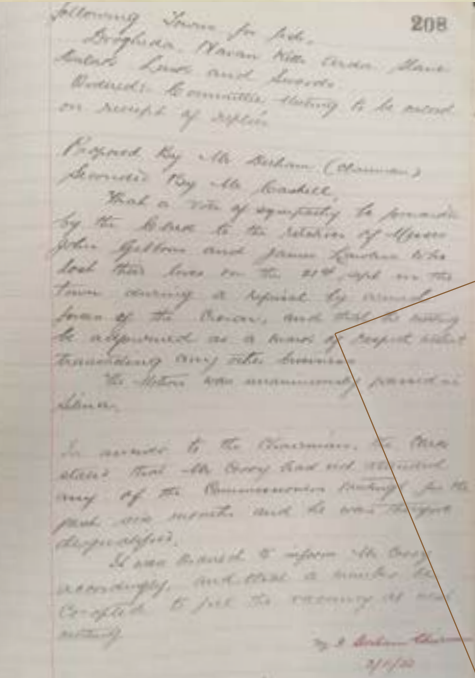 208
following Towns for
Drogheda, Navan Kells Ardee Slane
Lusk and Swords.
Ordered: Committee Meeting to be
on receipt of replies
Proposed By Mr Derham (Chairman)
Seconded By Mr
That a vote of sympathy be
by the Clerk to the relatives of Messrs
John Gibbons and James Lawless who
lost their lives on the in the
town during a reprisal by armed
forces of the Crown, and that the meeting
be adjourned as a mark of respect without
transacting any other business
The Motion was unanimously passed in
Silence.
In answer to the Chairman, the Clerk
stated that Mr had not attended
any of the Commissioners for the
past six months and he was
disqualified.
It was Ordered to inform Mr
accordingly, and that a member be
Co-opted to fill the vacancy at next
meeting
Derham Chairman